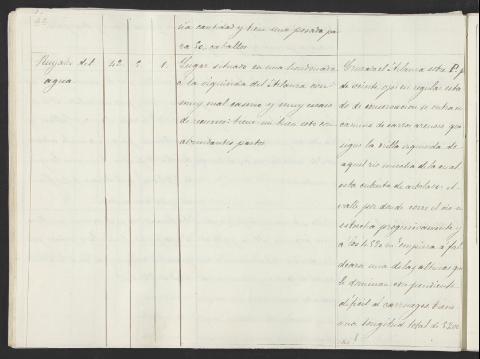 sia cantidad y tiene una posada pa
ra 50 caballos
Ruyales del
agua
42. 2 1.
Lugar situado en una hondonada
a la izquierda del Arlanza con
muy mal casino y muy escaso
de recursos: tiene un buen soto con
abundantes pastos
Cruzado el Arlanza sobre P. p
de veinte ojos en regular esta
do de conservacion se entra en
camino de carros arenoso que
sigue la orilla izquierda de
aquel rio mucha de la cual
esta cubierta de arboles: el
valle por donde corre el rio se
estrecha progresivamente y
a los 4.550 m.s empieza á fal
dearse una de las alturas que
le dominan con pendiente
dificil al carruage. Tiene
una longitud total de 5200
m.s